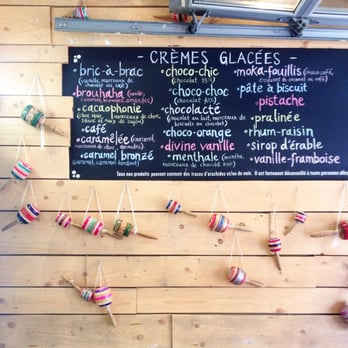 - CRÈMES GLACÉES -
• bric-à-brac
• brouhaha (vanille, caramel, brownies, amandes)
• cacaophonie
• café
• caramélée (caramel,
• caramel bronzé
• choco-chic
(chocolat
• choco-choc
(chocolat
• chocolacté
(chocolat au lait, morceaux de biscuits au chocolat)
• choco-orange
• divine vanille
• menthalo (menthe,
morceaux de chocolat noir)
• moka-fouillis (choco-café,
• pâte à biscuit
• pistache
• pralinée
• rhum-raisin
• sirop d'érable
• vanille-framboise
Tous nos produits peuvent contenir des traces d'arachides et/ou de noix. Il est fortement déconseillé à toute personne